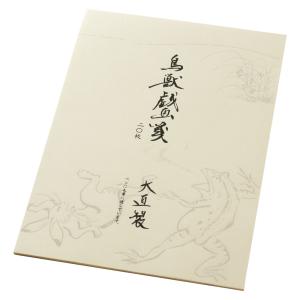 鳥獣戯画箋
二〇枚
大道製